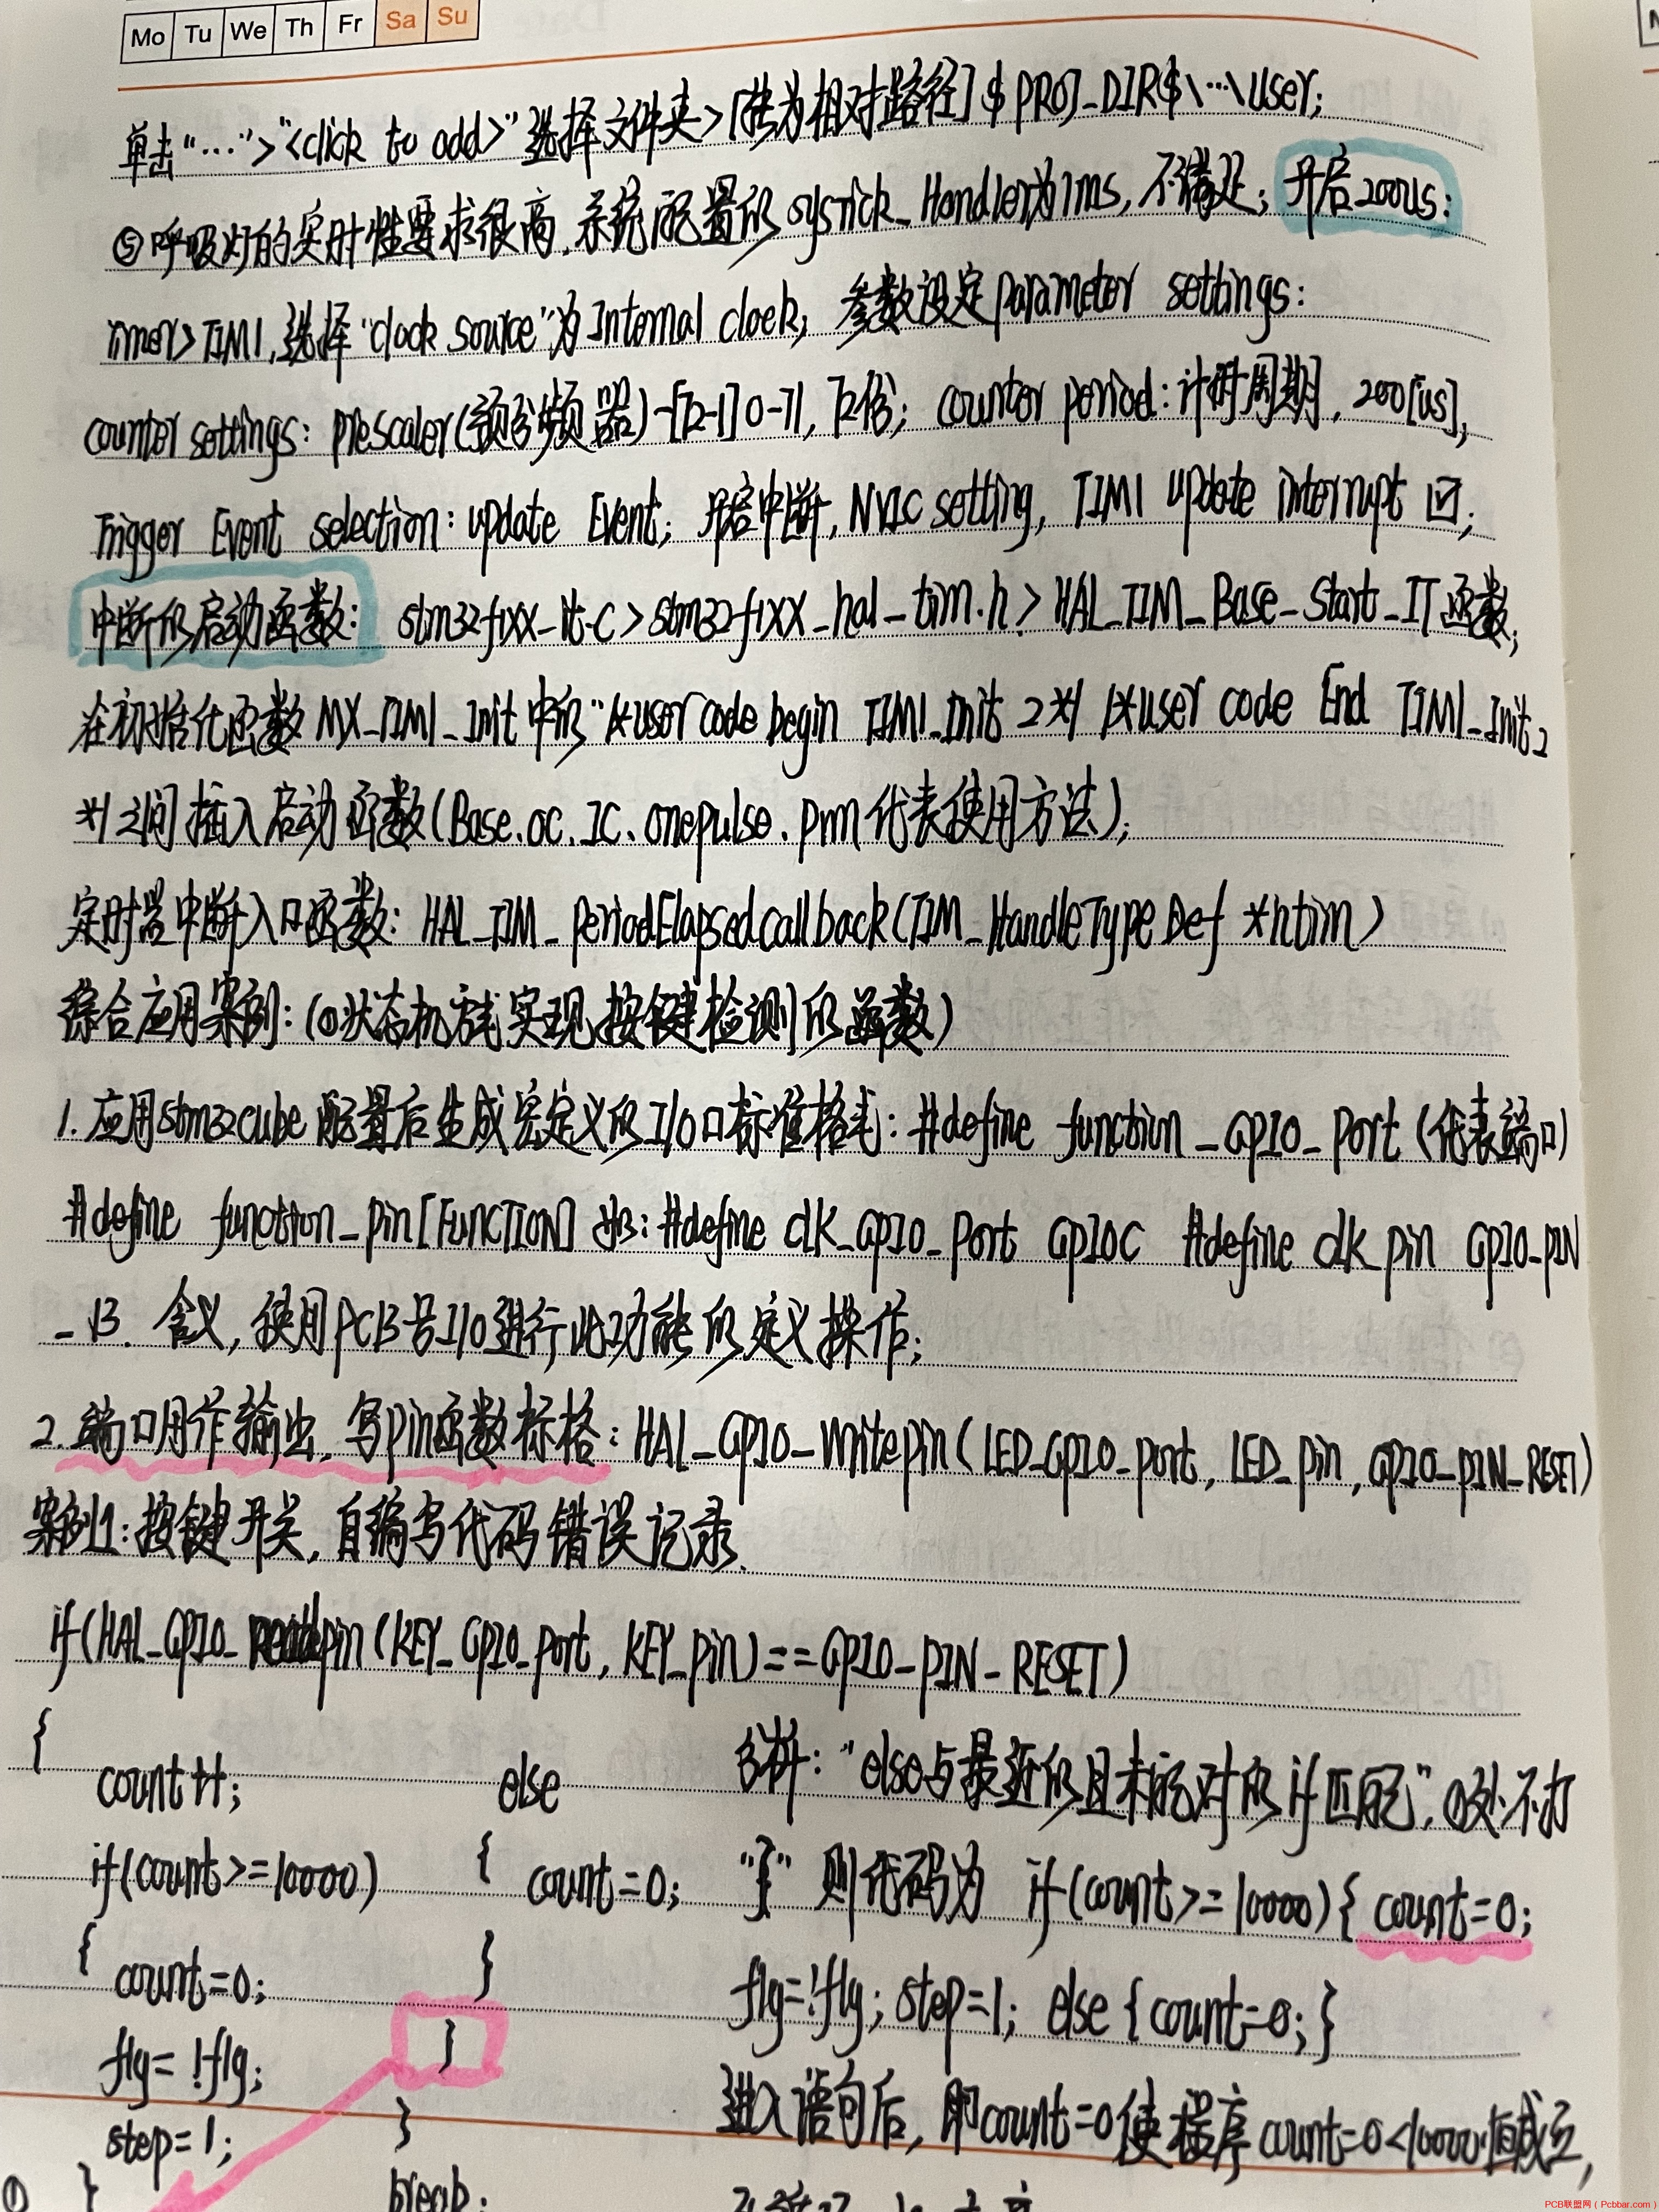 Mo Tu We Th Fr Sa Su
单击“…”>“<click to add>”选择文件夹>[转为相对路径]$PROJ_DIR$\…\User;
⑤呼吸灯的实时性要求很高,系统配置的systick_Handler为1ms,不满足;开启200us:
Timer>TIM1,选择“clock source”为Internal clock;参数设定parameter settings:
counter settings: prescaler(预分频器)-[72-1]0-71,72倍; counter period:计时周期,200[us],
Trigger Event selection: update Event;开启中断,NVIC setting, TIM1 update interrupt ☑;
中断的启动函数: stm32f1xx_it.c>stm32f1xx_hal_tim.h>HAL_TIM_Base_Start_IT函数,
在初始化函数MX_TIM1_Init中的“/*user code begin TIM1_Init 2*/ /*user code End TIM1_Init 2
*/之间插入启动函数(Base.oc.IC.onepulse.pwm代表使用方法);
定时器中断入口函数: HAL_TIM_PeriodElapsedcallback(TIM_HandleTypeDef *htim)
综合应用案例:(①状态机方式实现按键检测的函数)
1.应用stm32cube配置后生成宏定义的I/O口标准格式: #define function_GPIO_Port(代表端口)
#define function_pin[FUNCTION] 如: #define clk_GPIO_Port GPIOC #define clk_pin GPIO_PIN
_13. 含义,使用PC13号I/O进行此功能的定义操作;
2.端口用作输出,写pin函数标格: HAL_GPIO_Writepin(LED_GPIO_port, LED_pin, GPIO_PIN_RESET)
案例1:按键开关,自编写代码错误记录.
if(HAL_GPIO_readpin(KEY_GPIO_port, KEY_pin)==GPIO_PIN_RESET)
{
count++; else 分析:“else与最近的且未配对的if匹配”,①处不打
if(count>=10000) { count=0; “}” 则代码为 if(count>=10000){ count=0;
{ count=0; } flg=!flg; step=1; else {count=0;}
flg=!flg; }
step=1; } 进入语句后,即count=0使程序count=0<10000恒成立,
① } break;
PCB联盟网(Pcbbar.com)